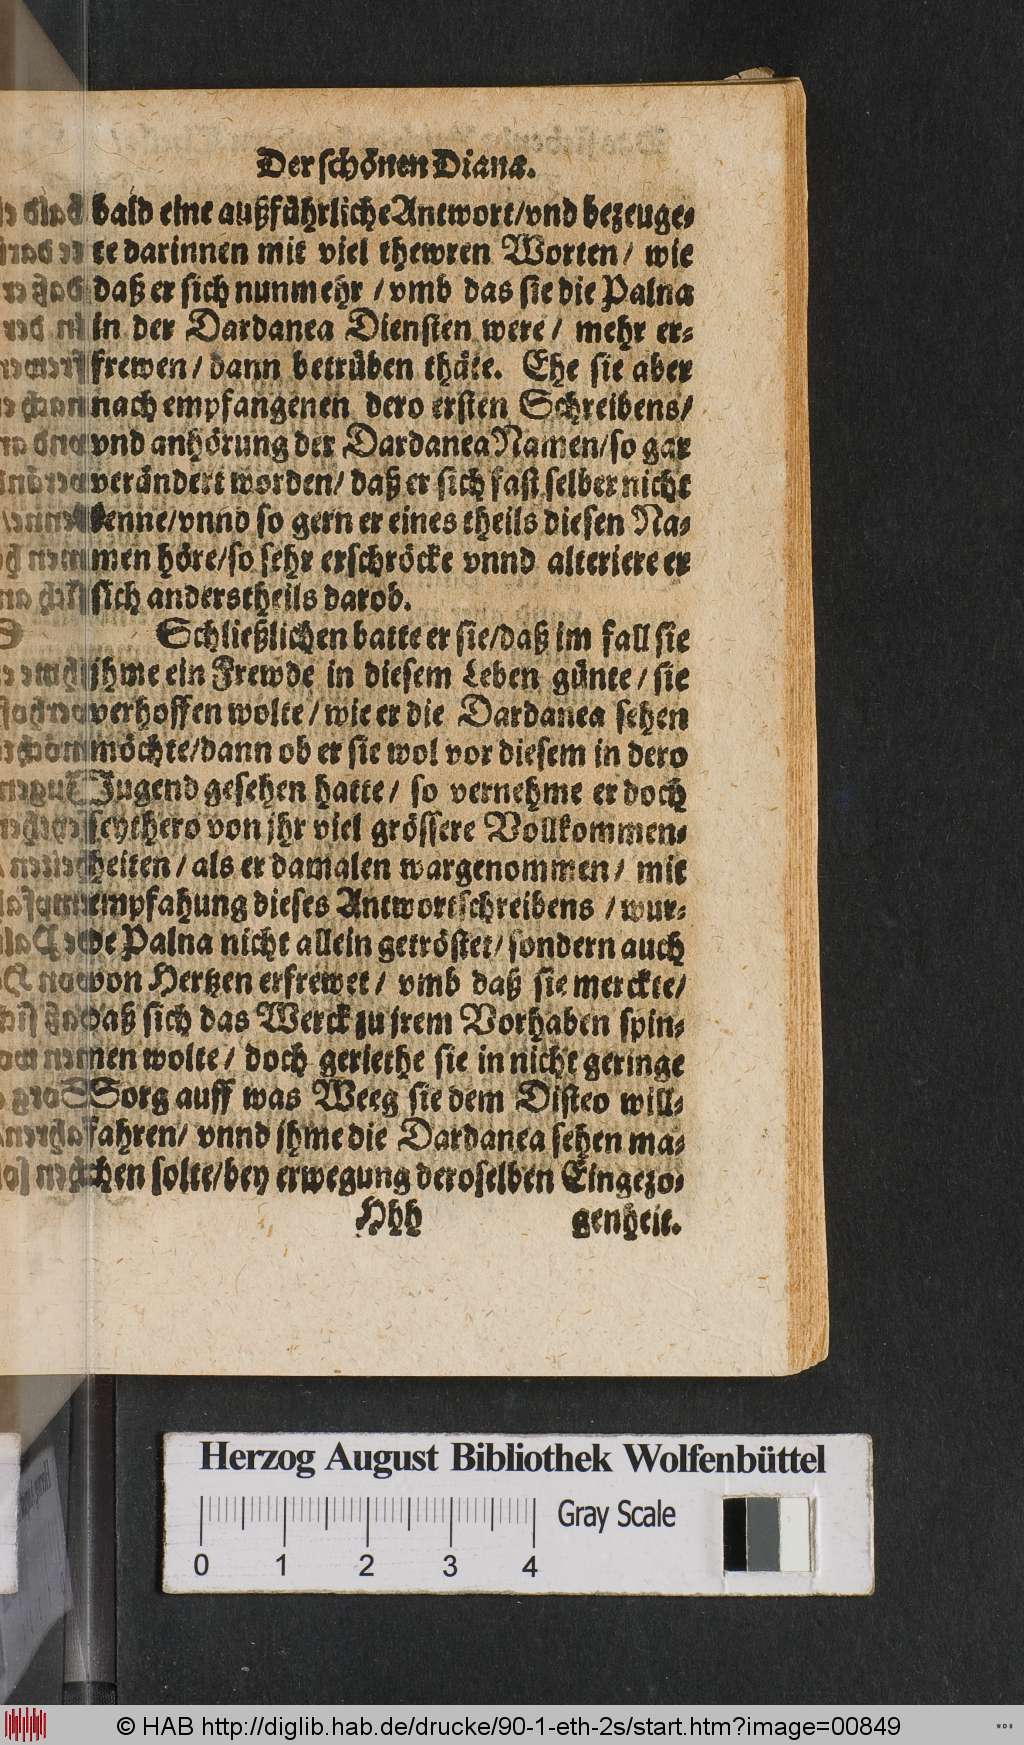 Der schönen Dianæ.
bald eine außführliche Antwort/vnd bezeuge-
te darinnen mit viel thewren Worten/ wie
daß er sich nunmehr / vmb das sie die Palna
in der Dardanea Diensten were/ mehr er-
frewen/ dann betrüben thäte. Ehe sie aber
nach empfangenen dero ersten Schreibens/
vnd anhörung der Dardanea Namen/so gar
verändert worden/ daß er sich fast selber nicht
kenne/vnnd so gern er eines theils diesen Na-
men höre/so sehr erschröcke vnnd alteriere er
sich anderstheils darob.
Schließlichen batte er sie/daß im fall sie
jhme ein Frewde in diesem Leben günte/ sie
verhoffen wolte/ wie er die Dardanea sehen
möchte/dann ob er sie wol vor diesem in dero
Jugend gesehen hatte/ so vernehme er doch
seythero von jhr viel grössere Vollkommen-
heiten/ als er damalen wargenommen/ mit
empfahung dieses Antwortschreibens / wur-
de Palna nicht allein getröstet/ sondern auch
von Hertzen erfrewet/ vmb daß sie merckte/
daß sich das Werck zu jrem Vorhaben spin-
nen wolte/ doch geriethe sie in nicht geringe
Sorg auff was Weeg sie dem Disteo will-
fahren/ vnnd jhme die Dardanea sehen ma-
chen solte/bey erwegung deroselben Eingezo-
Hhh genheit.
Herzog August Bibliothek Wolfenbüttel
Gray Scale
0 1 2 3 4
© HAB http://diglib.hab.de/drucke/90-1-eth-2s/start.htm?image=00849